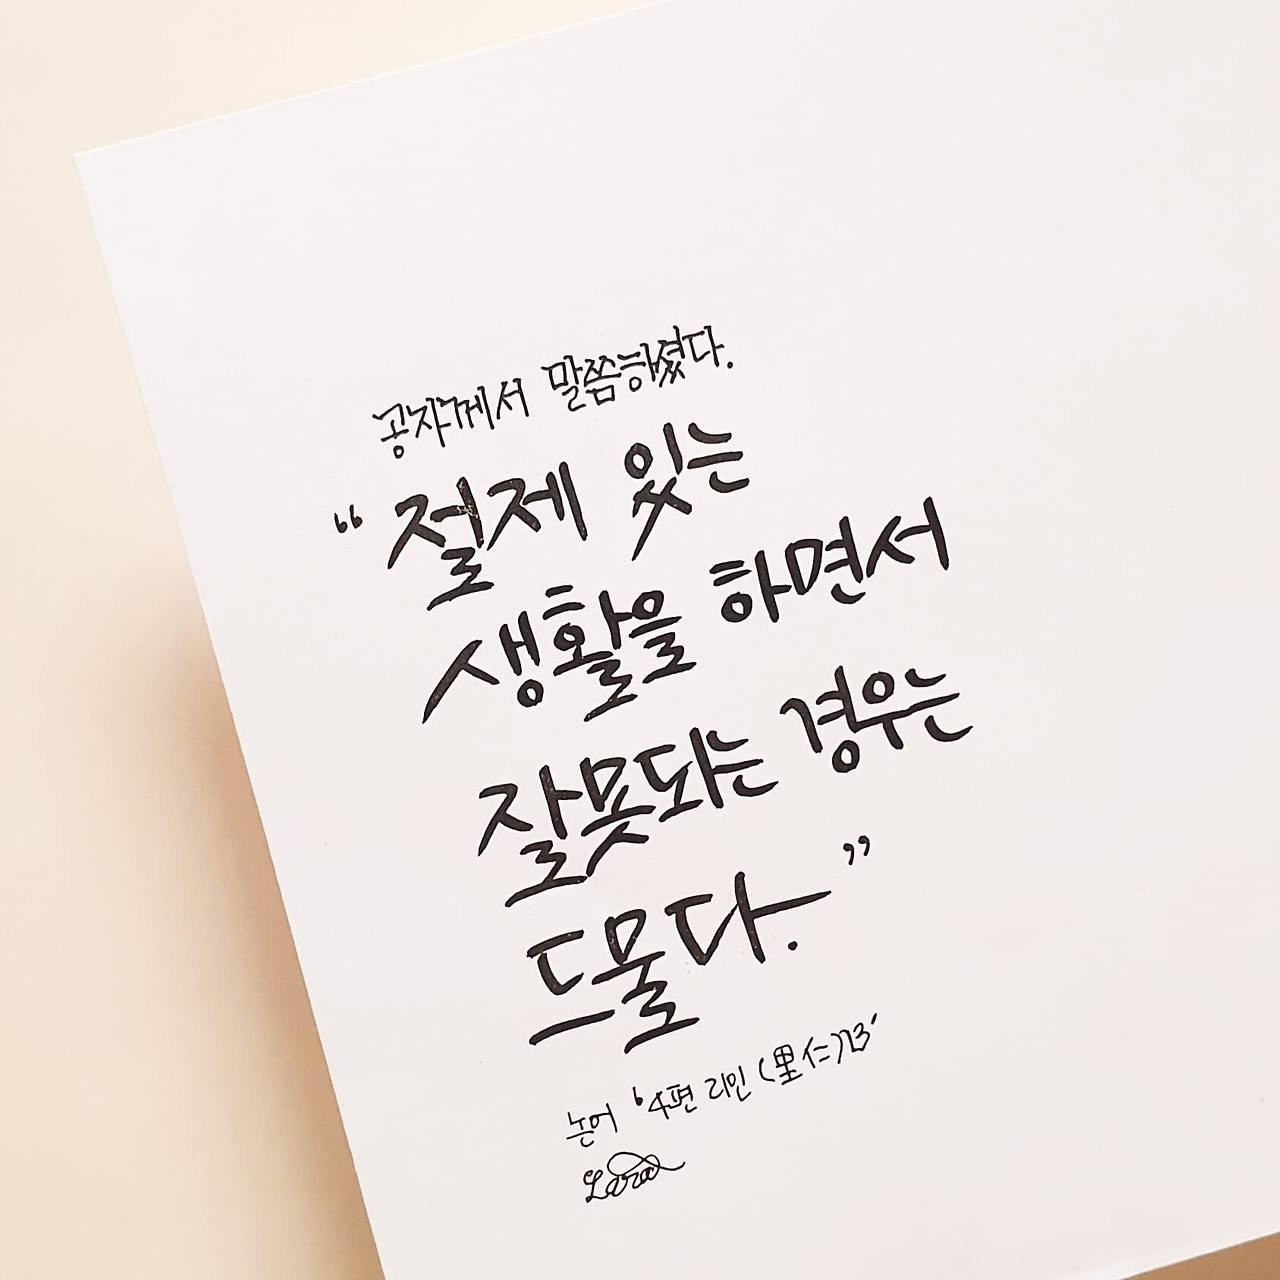 공자께서 말씀하셨다.
“절제 있는
생활을 하면서
잘못되는 경우는
드물다.”
논어 '4편 리인 (里仁)23'
Lara